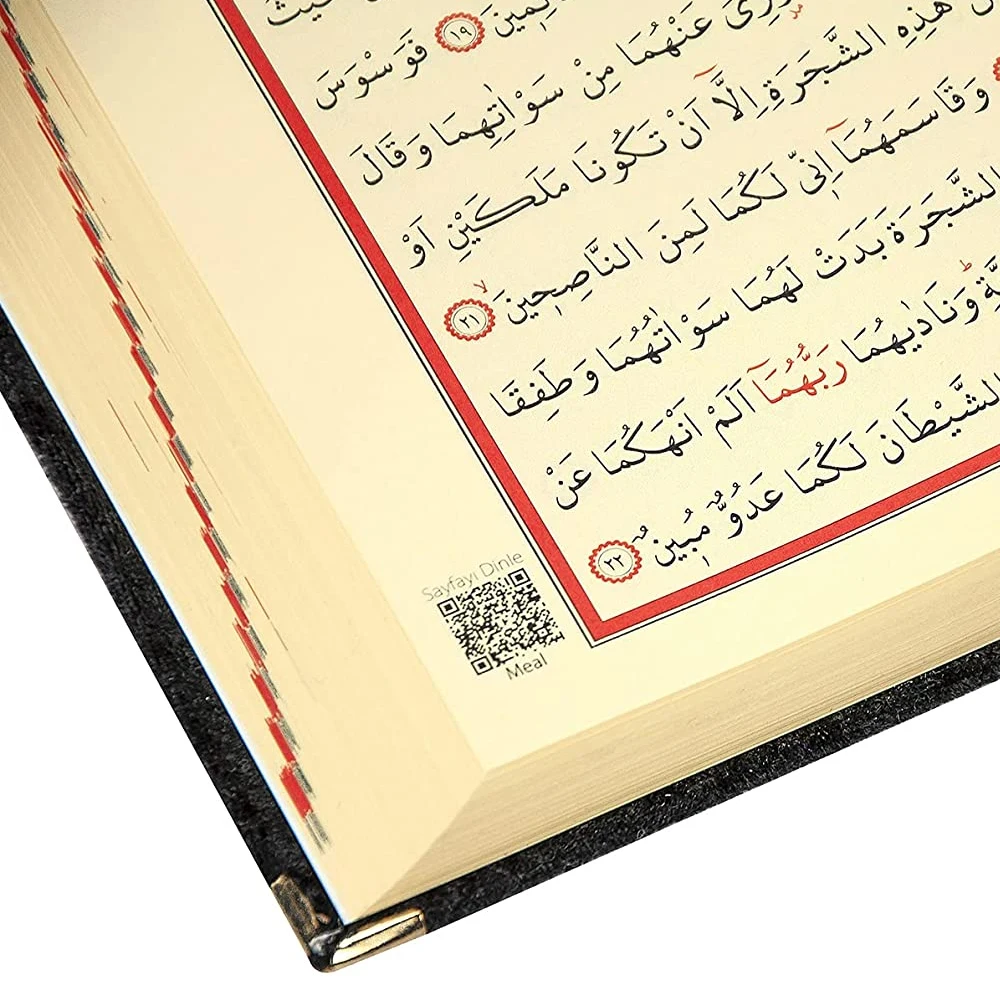 حَيْثُ
١٩ فَوَسْوَسَ
عَنْهُمَا مِنْ سَوْاٰتِهِمَا وَقَالَ
هٰذِهِ الشَّجَرَةِ اِلَّٓا اَنْ تَكُونَا مَلَكَيْنِ اَوْ
وَقَاسَمَهُمَٓا اِنّٖي لَكُمَا لَمِنَ النَّاصِحٖينَۙ ٢١
الشَّجَرَةَ بَدَتْ لَهُمَا سَوْاٰتُهُمَا وَطَفِقَا
وَنَادٰيهُمَا رَبُّهُمَٓا اَلَمْ اَنْهَكُمَا عَنْ
الشَّيْطَانَ لَكُمَا عَدُوٌّ مُبٖينٌ ٢٢
Sayfayı Dinle
Meal